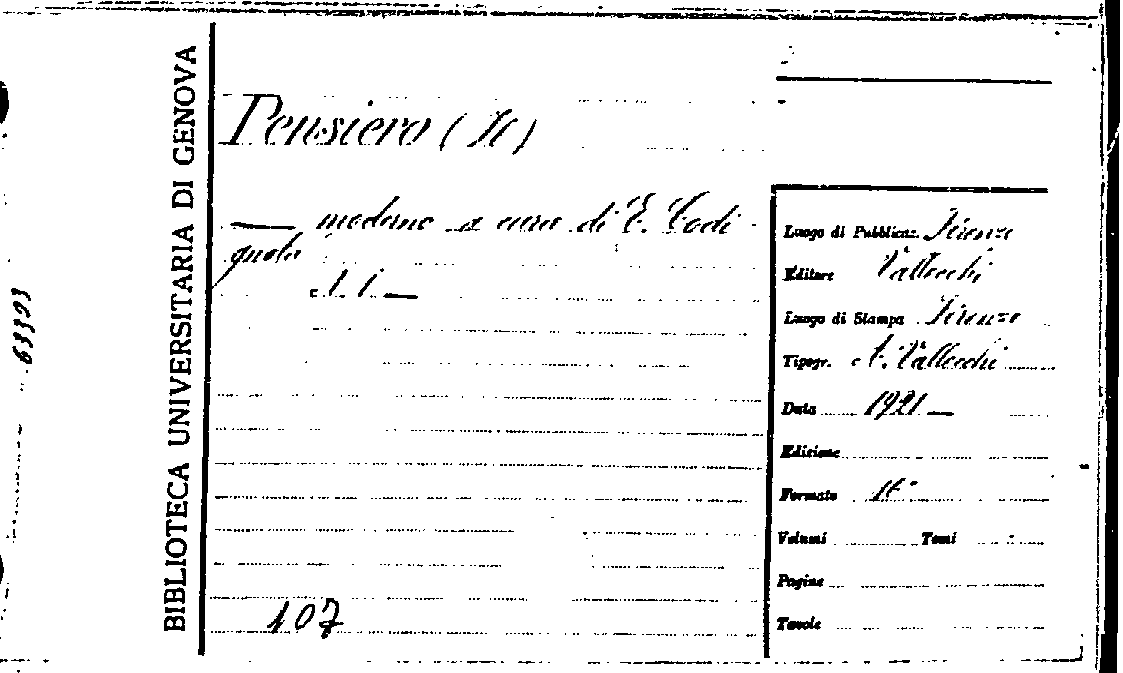 BIBLIOTECA UNIVERSITARIA DI GENOVA
63393
Pensiero (Il)
— moderno a cura di E. Codi
gnola
107
Luogo di Pubblicaz. Firenze
Editore Vallecchi
Luogo di Stampa Firenze
Tipogr. A. Vallecchi
Data 1921 —
Edizione
Formato 16°
Volumi Tomi
Pagine
Tavole